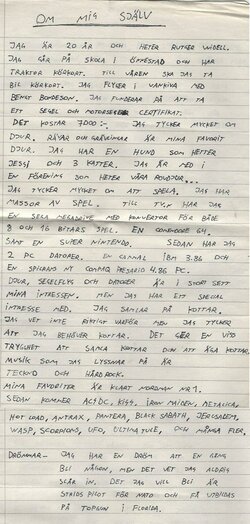 OM MIG SJÄLV
JAG ÄR 20 ÅR OCH HETER RUTGER WIDELL.
JAG GÅR PÅ SKOLA I ÖNNESTAD OCH HAR
TRAKTOR KÖRKORT. TILL VÅREN SKA JAG TA
BIL KÖRKORT. JAG FLYGER I VANKIVA MED
BENGT BONDESON. JAG FUNDERAR PÅ ATT TA
ETT SEGEL OCH MOTORSEGEL CERTIFIKAT.
DET KOSTAR 7000:- JAG TYCKER MYCKET OM
DJUR. RÄVAR OCH GRÄVLINGAR ÄR MINA FAVORIT
DJUR. JAG HAR EN HUND SOM HETER
JESSI OCH 3 KATTER. JAG ÄR MED I
EN FÖRENING SOM HETER VÅRA ROVDJUR...
JAG TYCKER MYCKET OM ATT SPELA. JAG HAR
MASSOR AV SPEL. TILL TV.N HAR JAG
EN SEGA MEGADRIVE MED KONVERTOR FÖR BÅDE
8 OCH 16 BITARS SPEL. EN COMENDORE 64,
SAMT EN SUPER NINTENDO. SEDAN HAR JAG
2 PC DATORER. EN GAMMAL IBM 3.86 OCH
EN SPLIRNS NY COMPAQ PRESARIO 4.86 PC.
DJUR, SEGELFLYG OCH DATORER ÄR I STORT SETT
MINA INTRESSEN. MEN JAG HAR ETT SPECIAL
INTRESSE MED. JAG SAMLAR PÅ KOTTAR.
JAG VET INTE RIKTIGT VARFÖR MEN JAG TYCKER
ATT JAG BEHÖVER KOTTAR. DET GER EN VISS
TRYGGHET ATT SAMLA KOTTAR OCH ATT ÄGA KOTTAR.
MUSIK SOM JAG LYSSNAR PÅ ÄR
TECKNO OCH HÅRDROCK.
MINA FAVORITER ÄR KLART NORDMAN NR 1.
SEDAN KOMMER AC/DC, KISS, IRON MAIDEN, METALICA,
HOT LOAD, ANTRAX, PANTERA, BLACK SABATH, JERUSALEM,
WASP, SCORPIONS, UFO, ULTIMA TULE, OCH MÅNGA FLER,
DRÖMMAR- JAG HAR EN DRÖM ATT EN GÅNG
BLI NÅGON, MEN DET VET JAG ALDRIG
SLÅR IN. DET JAG VILL BLI ÄR
STRIDS PILOT FÖR NATO OCH FÅ UTBILDAS
PÅ TOPGUN I FLORIDA.